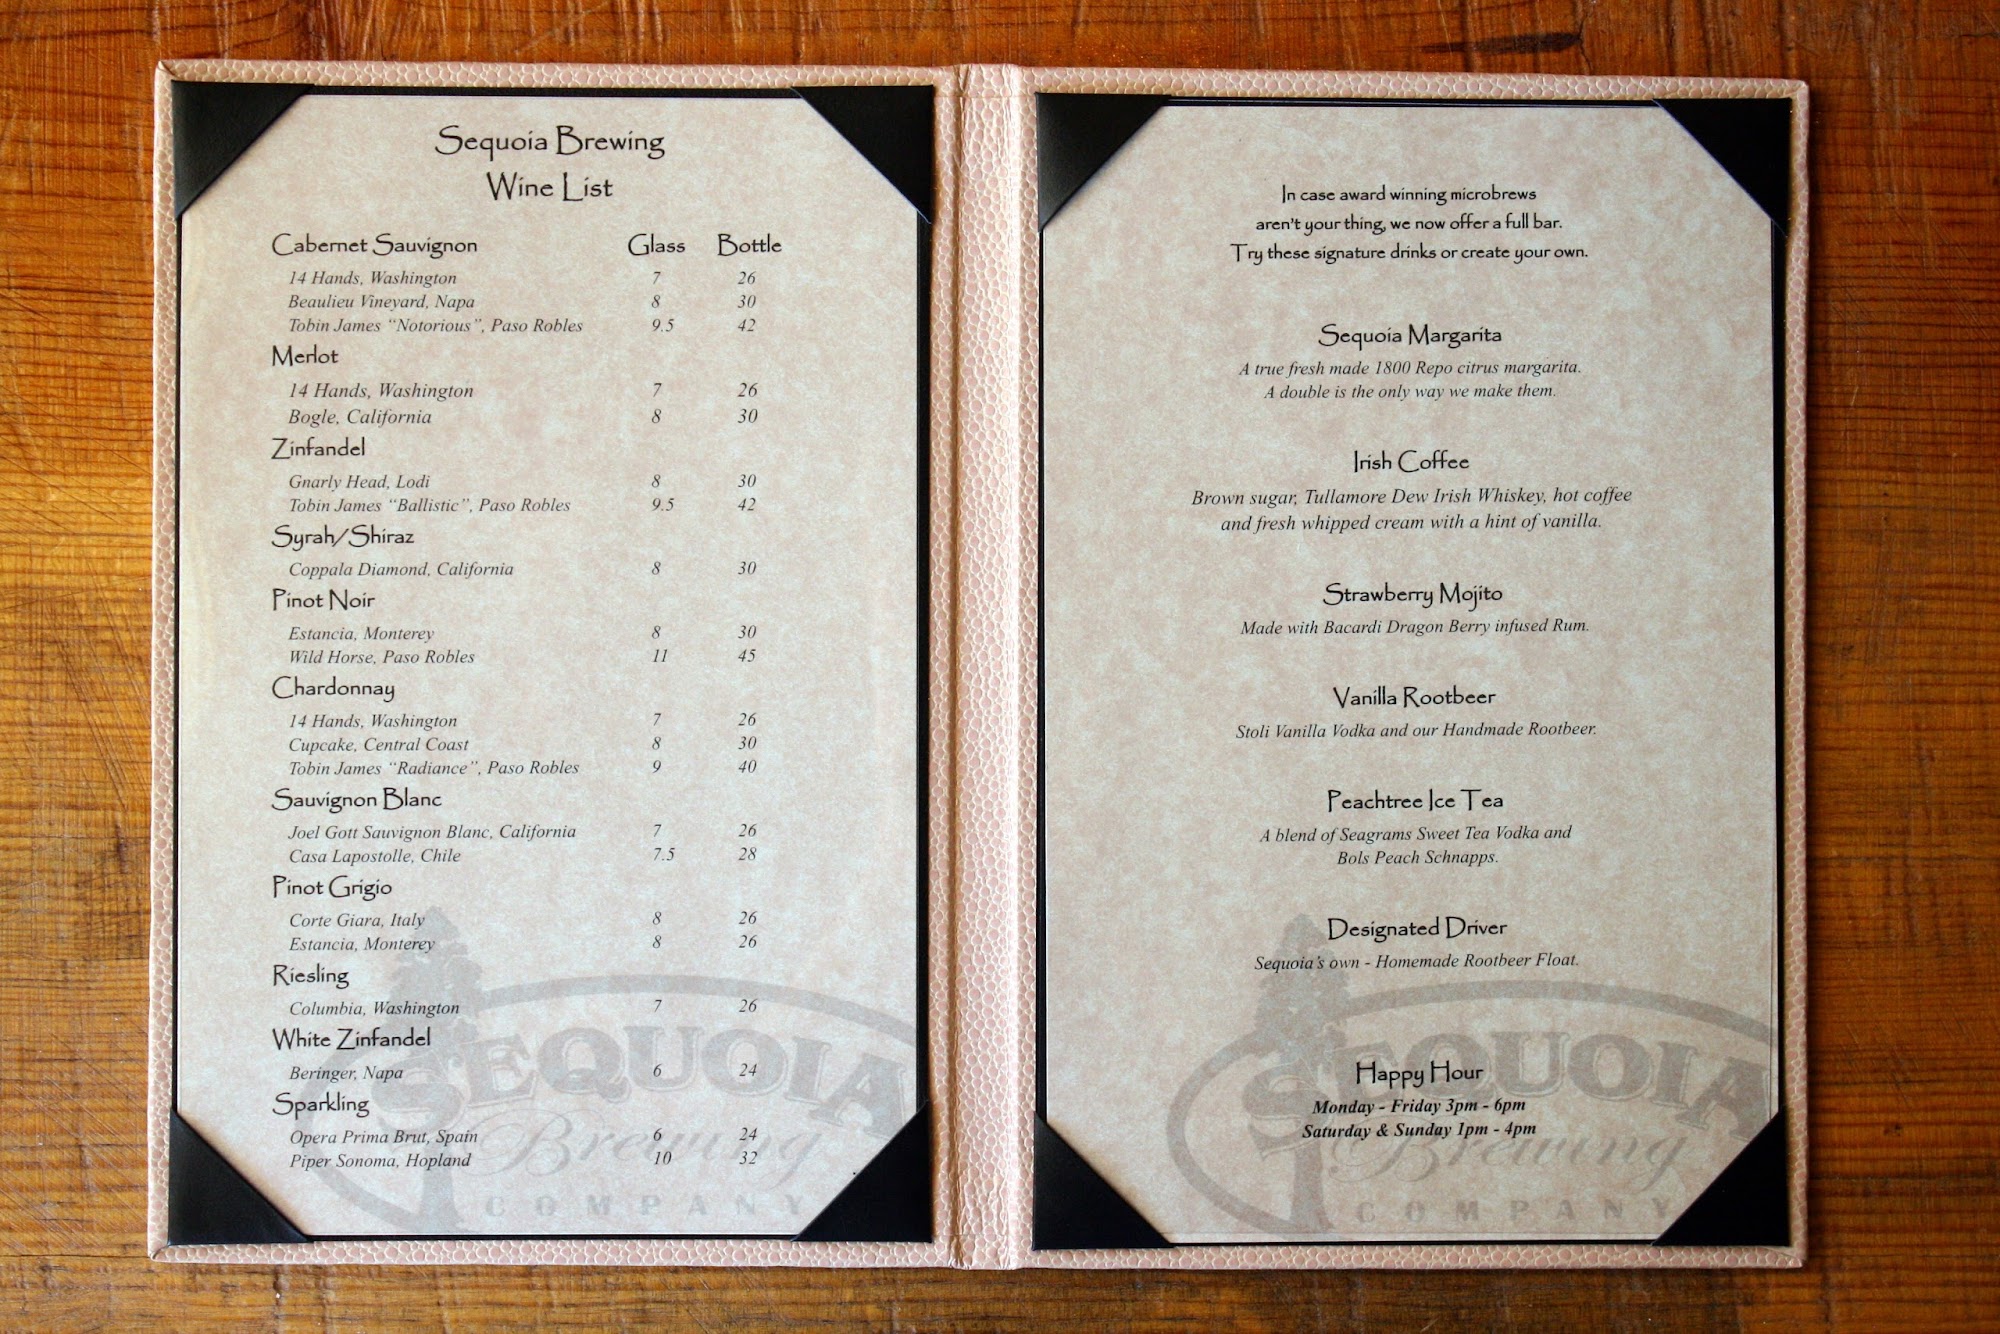 Sequoia Brewing
Wine List
Cabernet Sauvignon Glass Bottle
14 Hands, Washington 7 26
Beaulieu Vineyard, Napa 8 30
Tobin James “Notorious”, Paso Robles 9.5 42
Merlot
14 Hands, Washington 7 26
Bogle, California 8 30
Zinfandel
Gnarly Head, Lodi 8 30
Tobin James “Ballistic”, Paso Robles 9.5 42
Syrah/Shiraz
Coppala Diamond, California 8 30
Pinot Noir
Estancia, Monterey 8 30
Wild Horse, Paso Robles 11 45
Chardonnay
14 Hands, Washington 7 26
Cupcake, Central Coast 8 30
Tobin James “Radiance”, Paso Robles 9 40
Sauvignon Blanc
Joel Gott Sauvignon Blanc, California 7 26
Casa Lapostolle, Chile 7.5 28
Pinot Grigio
Corte Giara, Italy 8 26
Estancia, Monterey 8 26
Riesling
Columbia, Washington 7 26
White Zinfandel
Beringer, Napa 6 24
Sparkling
Opera Prima Brut, Spain 6 24
Piper Sonoma, Hopland 10 32
SEQUOIA
Brewing
COMPANY
In case award winning microbrews
aren't your thing, we now offer a full bar.
Try these signature drinks or create your own.
Sequoia Margarita
A true fresh made 1800 Repo citrus margarita.
A double is the only way we make them.
Irish Coffee
Brown sugar, Tullamore Dew Irish Whiskey, hot coffee
and fresh whipped cream with a hint of vanilla.
Strawberry Mojito
Made with Bacardi Dragon Berry infused Rum.
Vanilla Rootbeer
Stoli Vanilla Vodka and our Handmade Rootbeer.
Peachtree Ice Tea
A blend of Seagrams Sweet Tea Vodka and
Bols Peach Schnapps.
Designated Driver
Sequoia's own - Homemade Rootbeer Float.
Happy Hour
Monday - Friday 3pm - 6pm
Saturday & Sunday 1pm - 4pm
SEQUOIA
Brewing
COMPANY